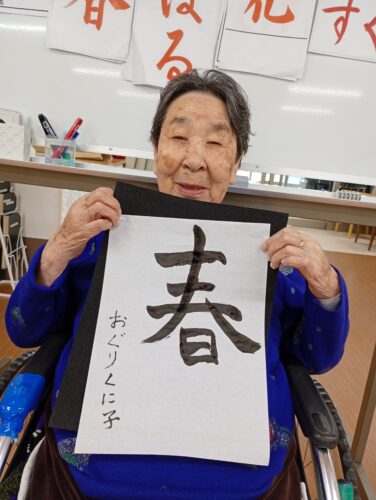 春
はる
花
すぐ
春
おぐりくに子